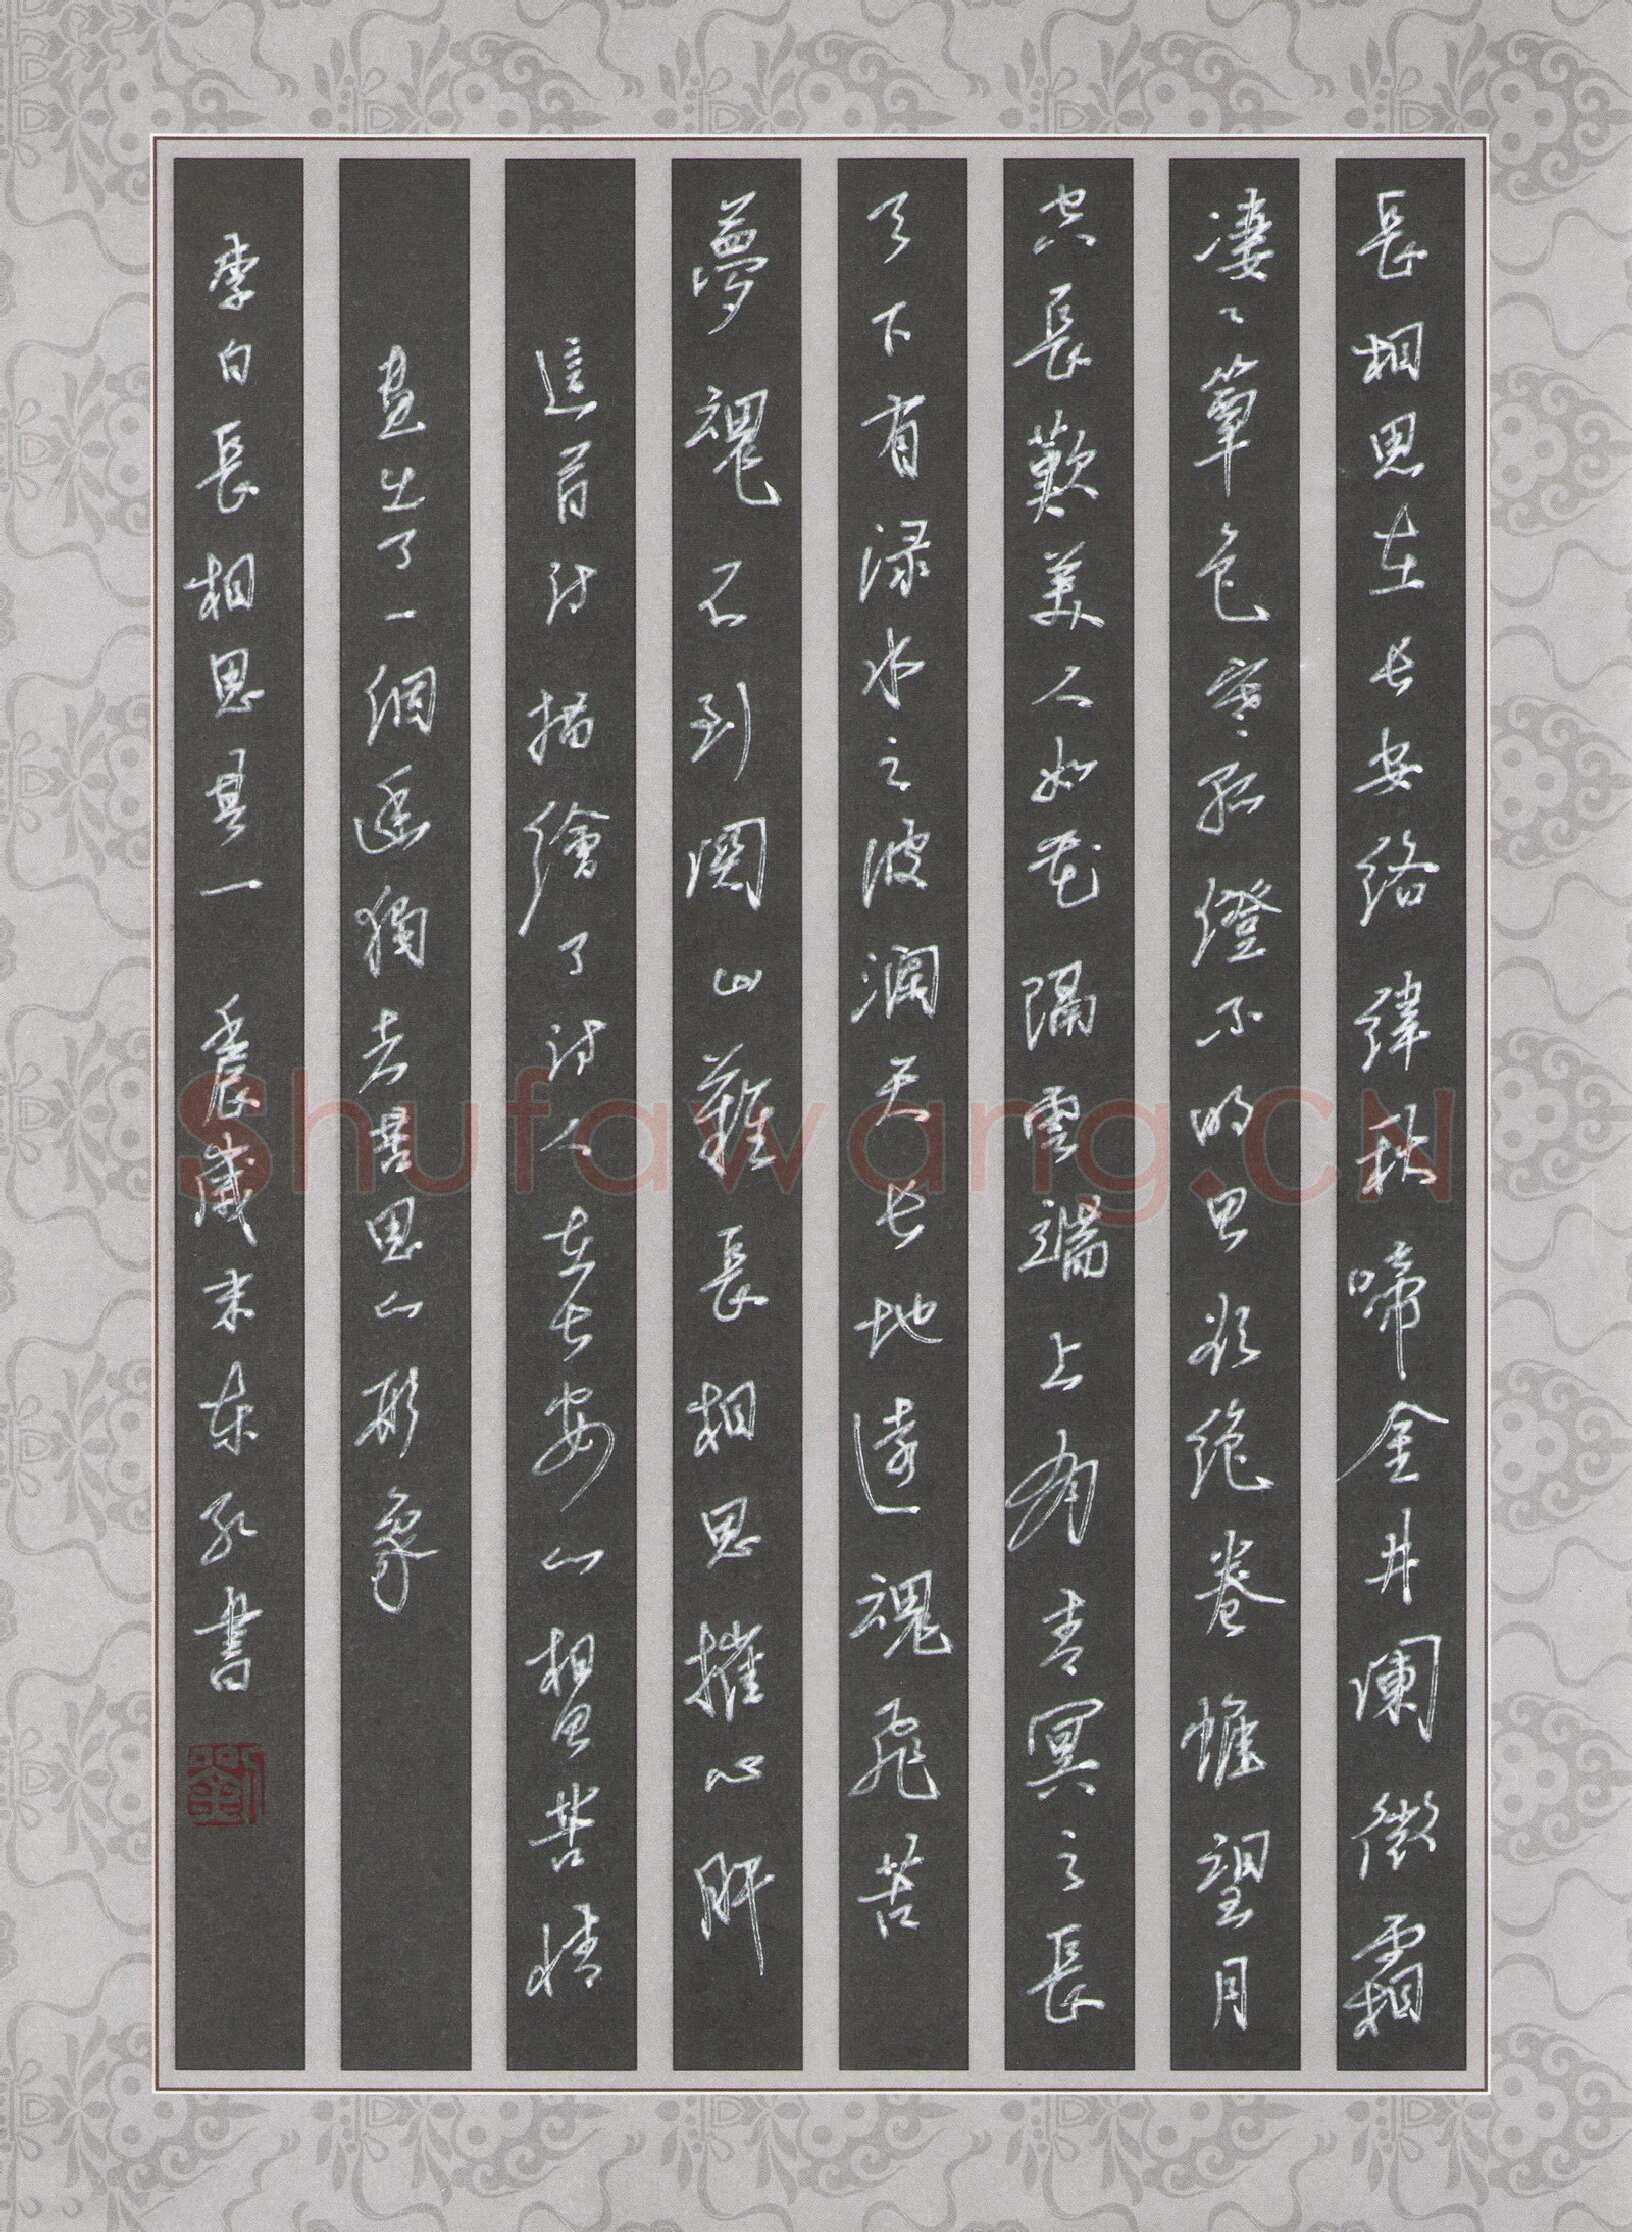 長相思在长安络緯秋啼金井闌微霜
凄々簟色寒孤燈不明思欲绝卷帷望月
空長歎美人如花隔雲端上有青冥之長
天下有渌水之波瀾天长地遠魂飛苦
夢魂不到関山難長相思摧心肝
這首诗描繪了诗人在长安的相思苦情
畫出了一個獨者苦思的形象
李白長相思其一 辰歲末东書
Shufawang.CN